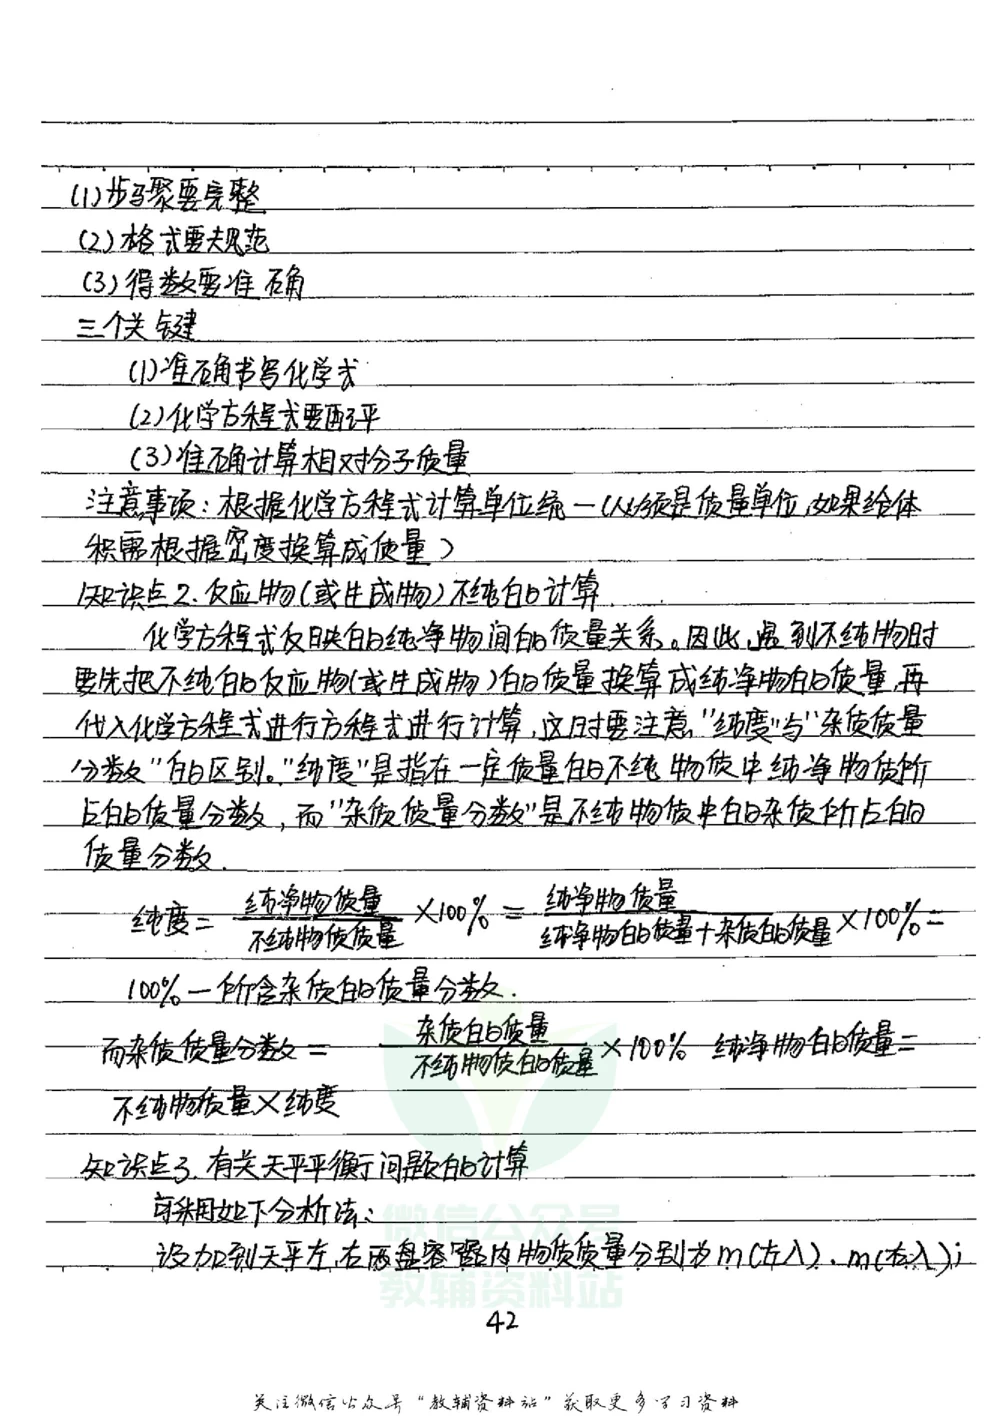 (1)步骤要完整
(2)格式要规范
(3)得数要准确
三个关键
(1)准确书写化学式
(2)化学方程式要配平
(3)准确计算相对分子质量
注意事项:根据化学方程式计算单位统一(必须是质量单位,如果给体
积需根据密度换算成质量)
知识点2.反应物(或生成物)不纯的计算.
化学方程式反映的纯净物间的质量关系。因此,遇到不纯物时
要先把不纯的反应物(或生成物)的质量换算成纯净物的质量,再
代入化学方程式进行方程式进行计算,这时要注意,"纯度"与"杂质质量
分数"的区别。"纯度"是指在一定质量的不纯物质中纯净物质所
占的质量分数,而"杂质质量分数"是不纯物质中的杂质所占的
质量分数.
纯度=纯净物质量/不纯物质质量×100%=纯净物质量/纯净物的质量+杂质的质量×100%=
100%-所含杂质的质量分数.
而杂质质量分数=杂质的质量/不纯物质的质量×100% 纯净物的质量=
不纯物质量×纯度
知识点3.有关天平平衡问题的计算
可采用如下分析法:
设加到天平左、右两盘容器内物质质量分别为m(左入).m(右入);
微信公众号
教辅资料站
42
关注微信公众号"教辅资料站"获取更多学习资料